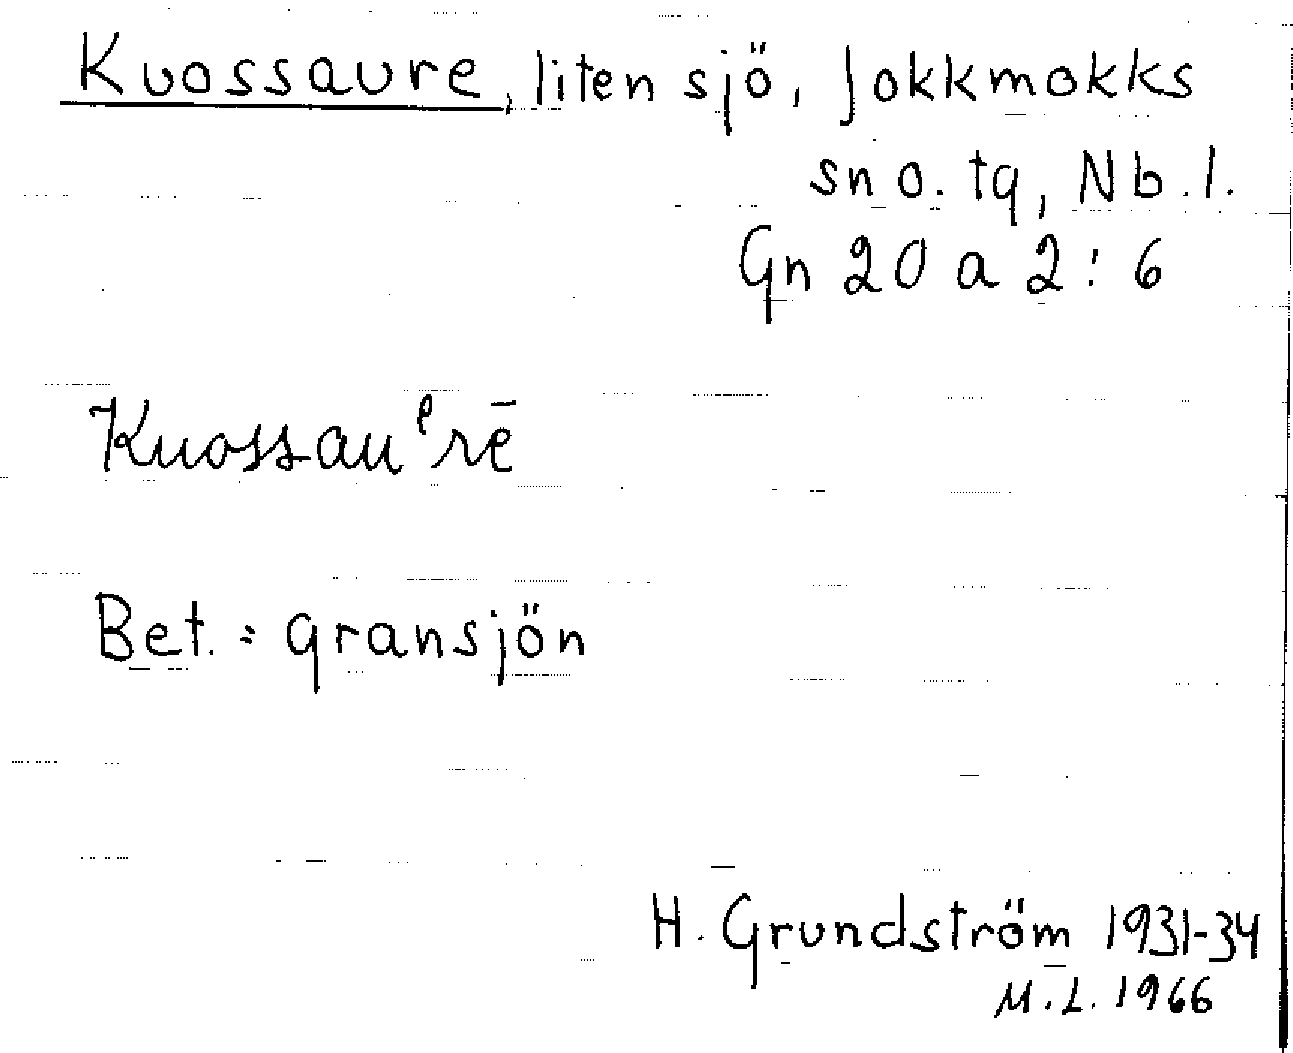 Kuossaure, liten sjö, Jokkmokks
sn o. tg, Nb.l.
Gn 20 a 2:6
Kuossauᵉrē
Bet. = gransjön
H. Grundström 1931-34
M.L. 1966